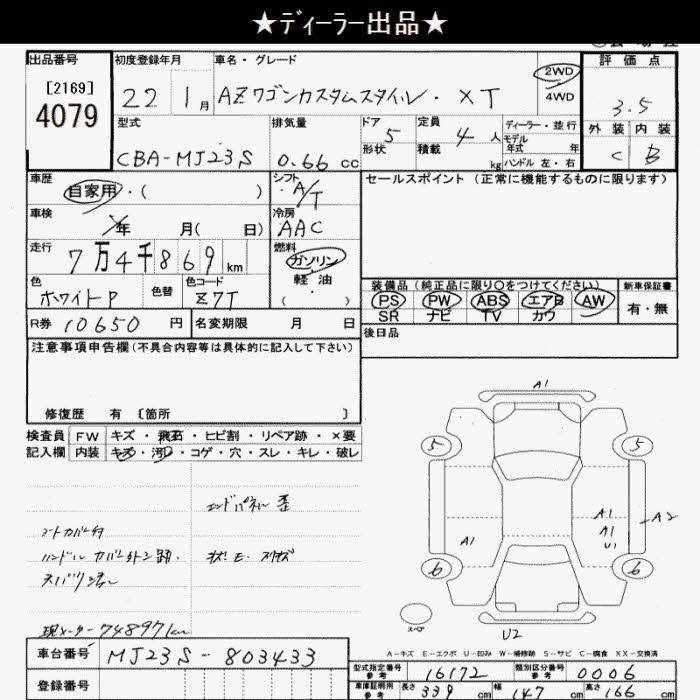 ★ディーラー出品★
出品番号
[2169]
4079
初度登録年月
22 1月
車名・グレード
AZワゴンカスタムスタイル・XT
2WD
4WD
評価点
3.5
外装 内装
C B
型式
CBA-MJ23S
排気量
0.66 cc
ドア 5
形状
定員 4 人
積載 kg
ディーラー・並行
モデル
年式 年
ハンドル 左・右
車歴
自家用・( )
シフト
A/T
セールスポイント (正常に機能するものに限ります)
車検
年 月( 日)
冷房
AAC
走行
7万4千869 km
燃料
ガソリン
軽油
( )
色
ホワイトP
色替
色コード
Z7T
装備品 (純正品に限り○をつけてください)
PS PW ABS エアB AW
SR ナビ TV カワ
新車保証書
有・無
R券 10650 円
名変期限 月 日
後日品
注意事項申告欄(不具合内容等は具体的に記入して下さい)
修復歴 有 〔箇所 〕
検査員
記入欄
FW キズ・飛石・ヒビ割・リペア跡・×要
内装 キズ・汚レ・コゲ・穴・スレ・キレ・破レ
エンドパネル 歪
シートカバー付
ハンドルカバー
現メーター 74897km
A1
5 5
A1
A1
A2
U1
A1
6 6
スペア
U2
A-キズ E-エクボ U-凹み W-補修跡 S-サビ C-腐食 XX-交換済
車台番号
MJ23S-803433
登録番号
型式指定番号
参考
16172
類別区分番号
参考
0006
車庫証明用
参考
長さ 339 cm
幅 147 cm
高さ 166 cm